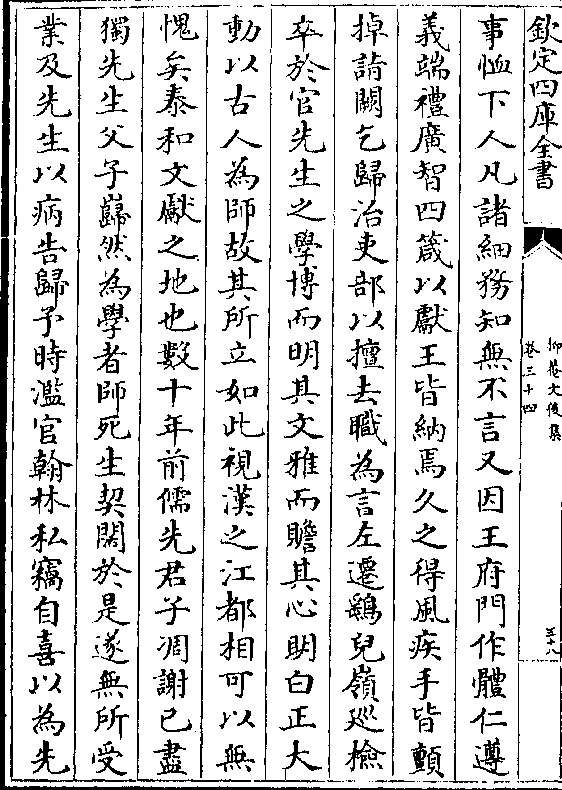 欽定四庫全書
抑菴文後集
卷三十四
三十八
事恤下人凡諸細務知無不言又因王府門作體仁遵
義端禮廣智四箴以獻王皆納焉久之得風疾手皆顫
掉請闕乞歸治吏部以擅去職為言左遷鷄兒嶺巡檢
卒於官先生之學博而明其文雅而贍其心明白正大
動以古人為師故其所立如此視漢之江都相可以無
愧矣泰和文獻之地也數十年前儒先君子凋謝已盡
獨先生父子巋然為學者師死生契闊於是遂無所受
業及先生以病告歸予時濫官翰林私竊自喜以為先